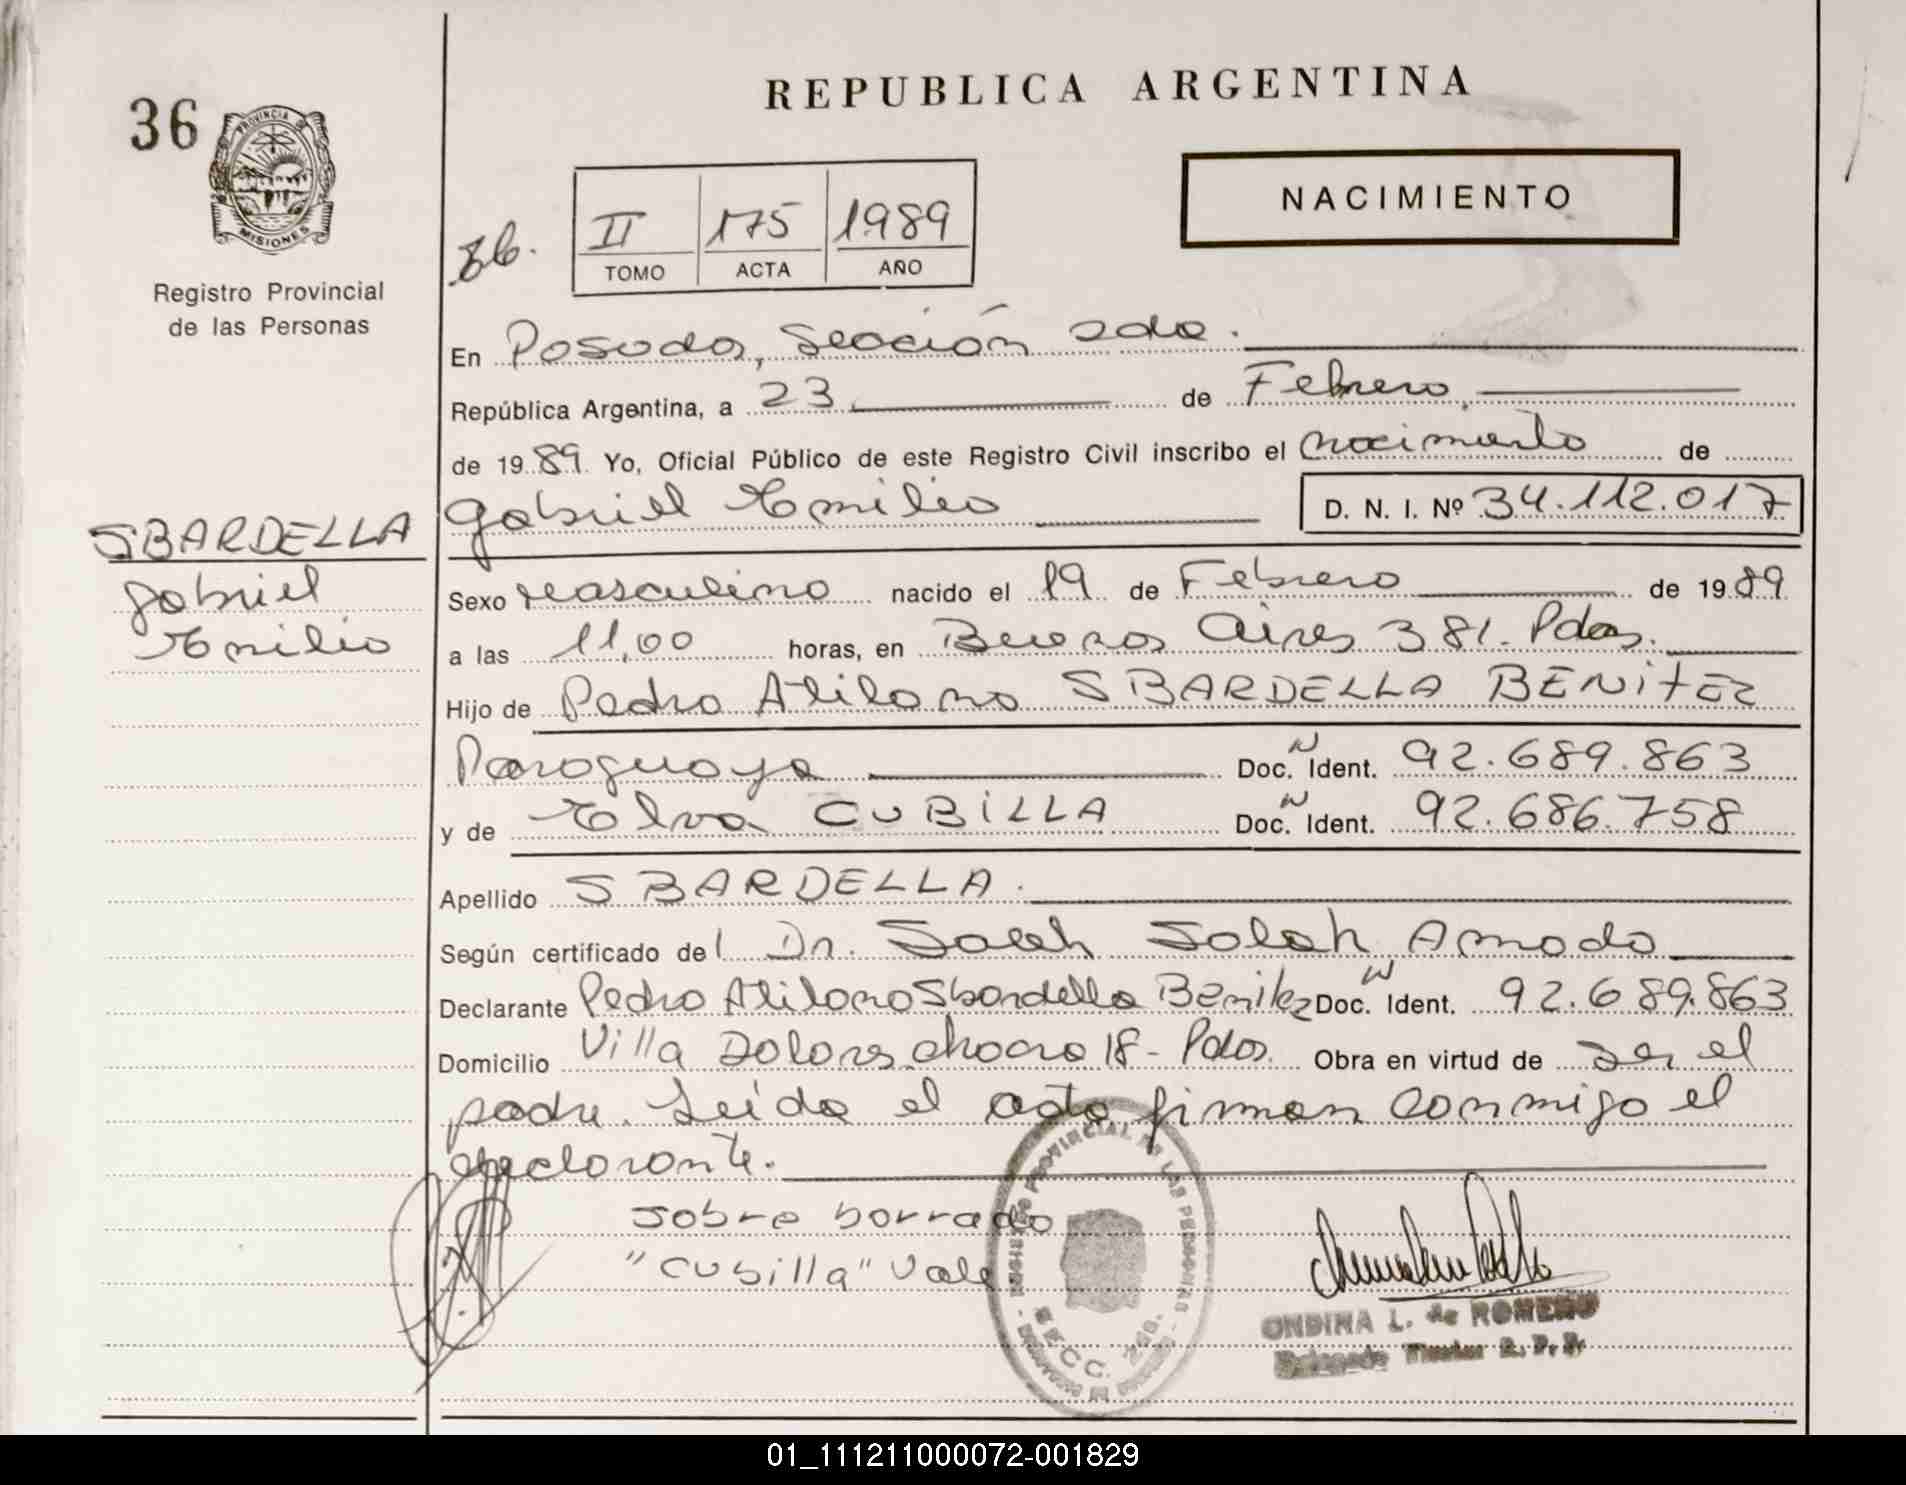 REPUBLICA ARGENTINA
36
PROVINCIA DE
MISIONES
Registro Provincial
de las Personas
NACIMIENTO
36.
II 175 1989
TOMO ACTA AÑO
En Posadas, Sección 2da.
República Argentina, a 23 de Febrero,
de 1989 Yo, Oficial Público de este Registro Civil inscribo el nacimiento de
Gabriel Emilio D. N. I. Nº 34.112.017
SBARDELLA
Gabriel
Emilio
Sexo Masculino nacido el 19 de Febrero de 1989
a las 11,00 horas, en Buenos Aires 381. Pdas.
Hijo de Pedro Atilano SBARDELLA BENITEZ
Paraguaya Doc. N Ident. 92.689.863
y de Elva CUBILLA Doc. N Ident. 92.686.758
Apellido SBARDELLA.
Según certificado del Dr. Salah Amado
Declarante Pedro Atilano Sbardella Benitez Doc. N Ident. 92.689.863
Domicilio Villa Dolores chacra 18 - Pdas. Obra en virtud de ser el
padre. Leída el acta firman conmigo el
declarante.
sobre borrado
"Cubilla" Vale
REGISTRO PROVINCIAL DE LAS PERSONAS
SECC. 2da.
ONDINA L. de ROMERO
Delegado Titular R. P. P.
01_111211000072-001829